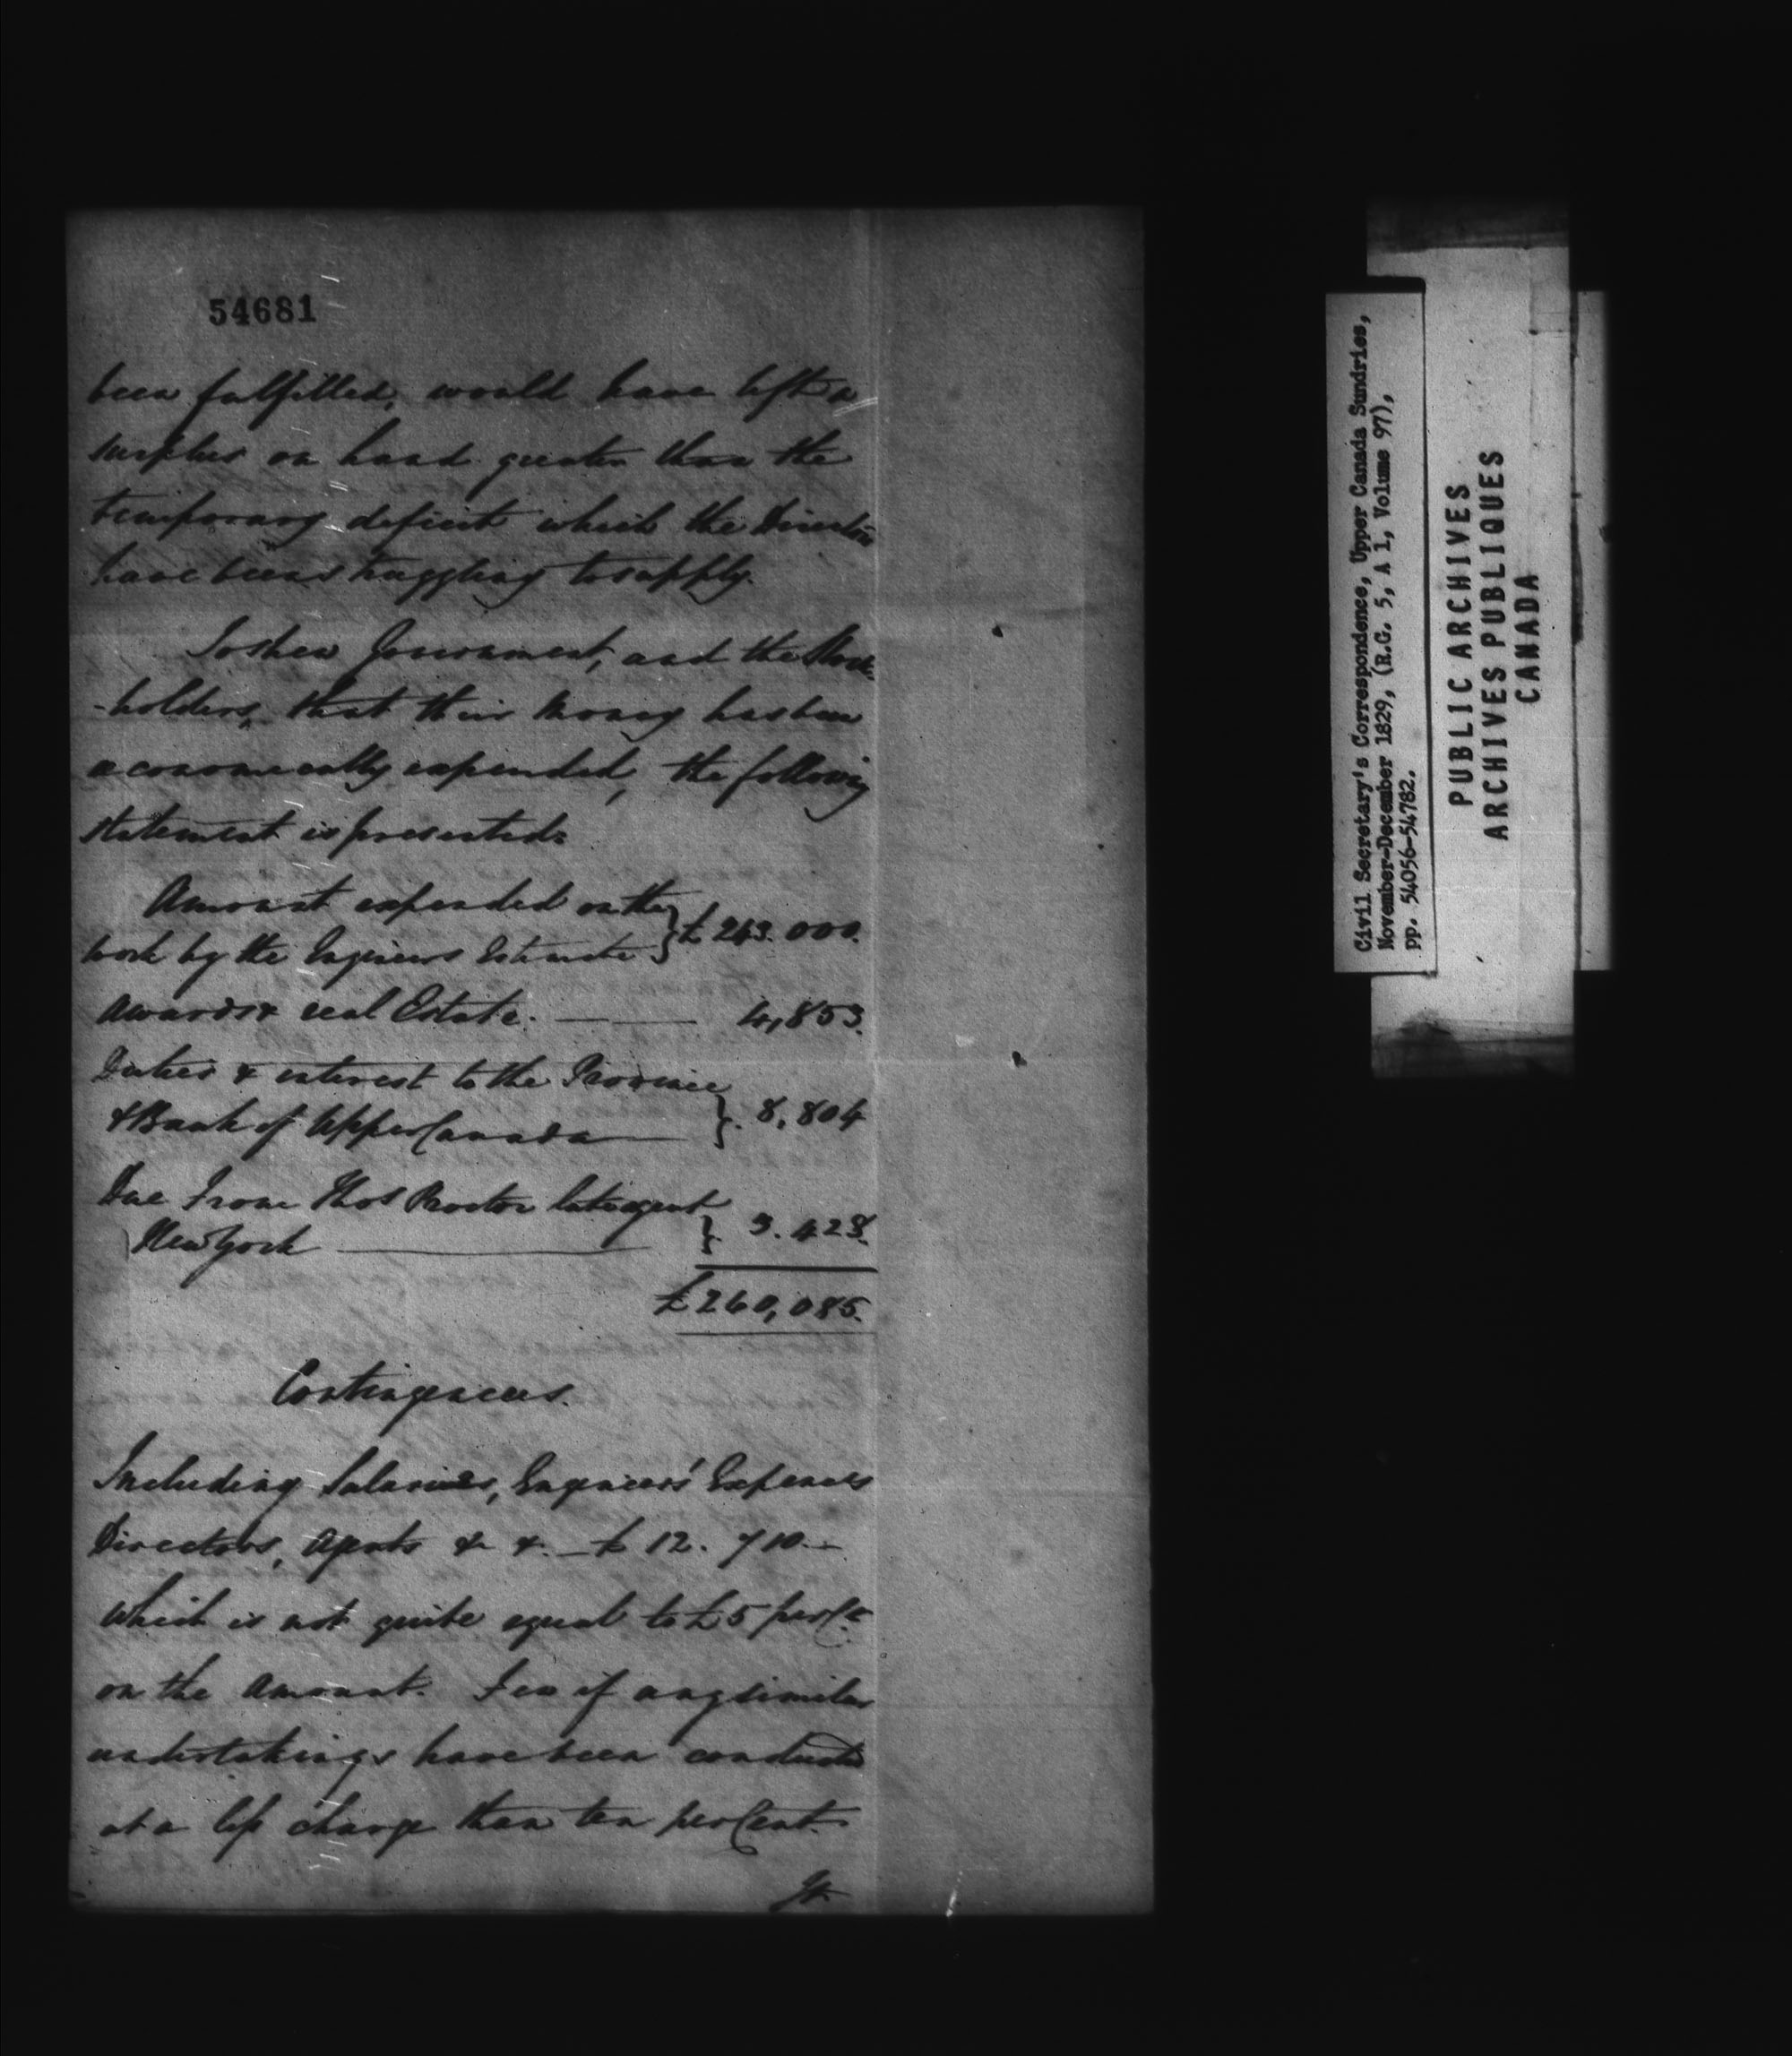 54681
been fulfilled, would have left a
surplus on hand greater than the
temporary deficit which the Directors
have been struggling to supply.
To shew Government, and the Stock
-holders, that their money has been
economically expended, the following
statement is presented:
Amount expended on the
work by the Engineers Estimate } £243.000.
Awards & real Estate. — — 4,853.
Duties & interest to the Province
& Bank of Upper Canada — }. 8,804
Due from Thos Proctor late agent
New York — } 3.428.
£260,085.
Contingencies.
Including Salaries, Engineers' Expences
Directors, Agents & &. — £12.710 —
which is not quite equal to £5 per Ct
on the amount. Few if any similar
undertakings have been conducted
at a less charge than ten per Cent.
It
Civil Secretary's Correspondence, Upper Canada Sundries,
November-December 1829, (R.G. 5, A 1, Volume 97),
pp. 54056-54782.
PUBLIC ARCHIVES
ARCHIVES PUBLIQUES
CANADA